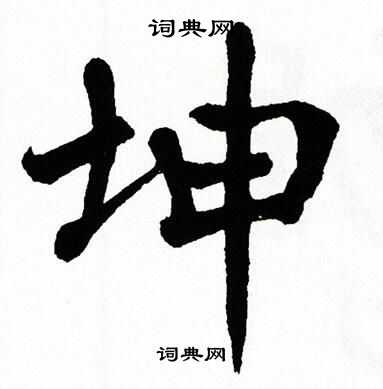 词典网
坤
词典网